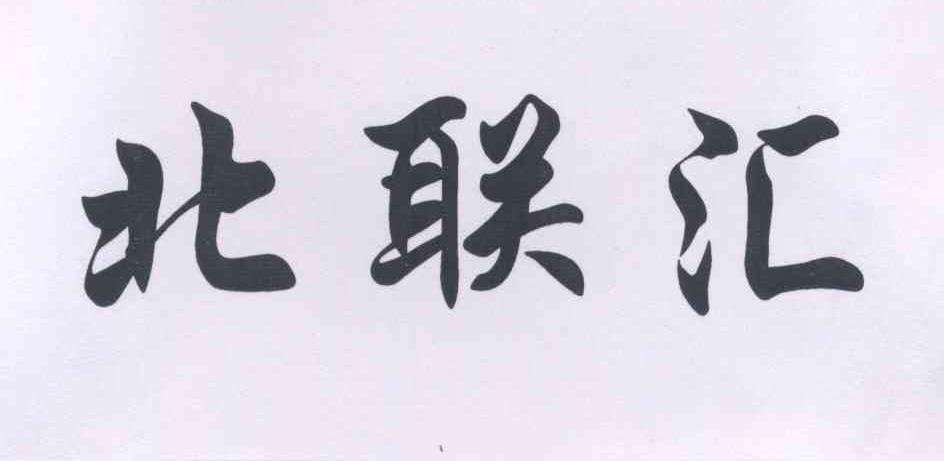 北联汇